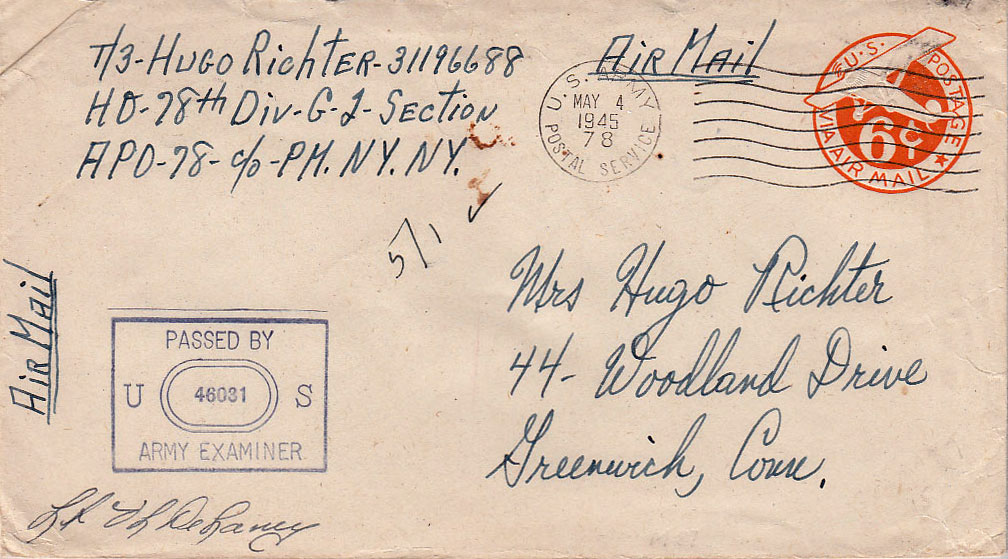 T/3-Hugo Richter-31196688
HD-78th Div-G-1-Section
APO-78-c/o-PM. NY. NY.
Air Mail
U.S. ARMY
MAY 4
1945
78
POSTAL SERVICE
U.S. POSTAGE
6¢
VIA AIR MAIL
5/1 ✓
Air Mail
Mrs Hugo Richter
44- Woodland Drive
Greenwich, Conn.
PASSED BY
U 46031 S
ARMY EXAMINER
Lt DeLaney